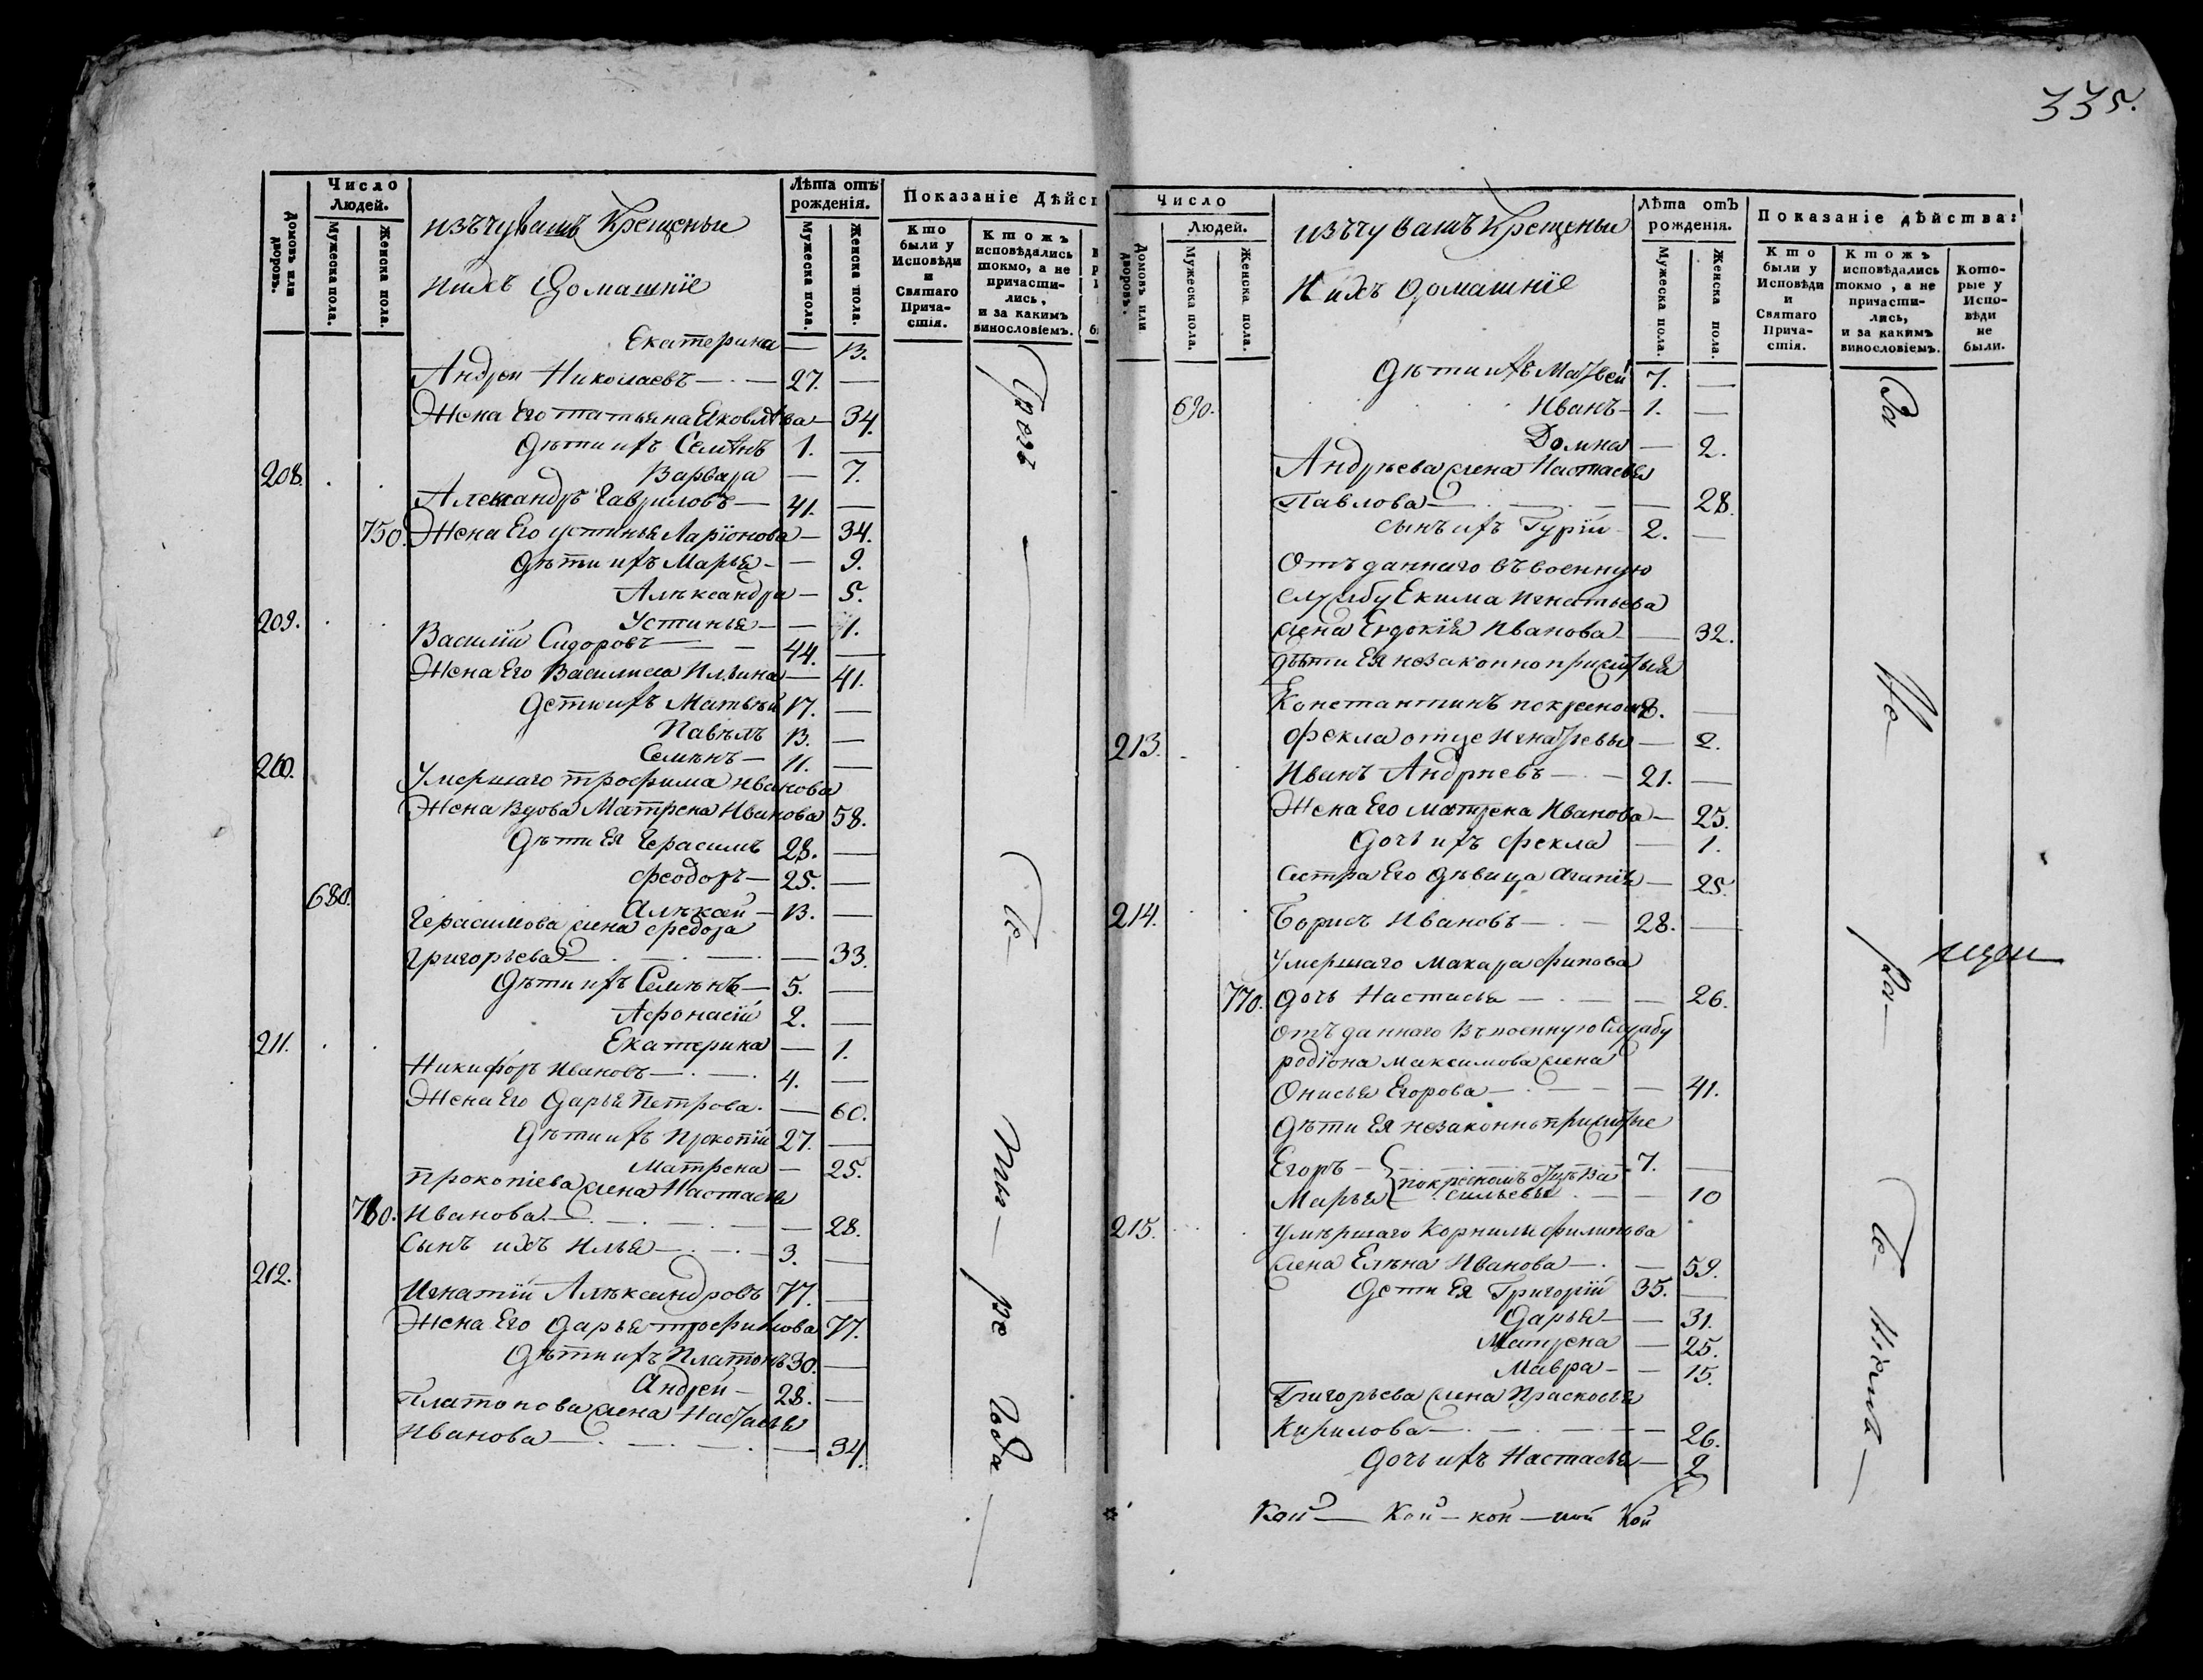 335.
Число Людей.
Домовъ или дворовъ.
Мужеска пола.
Женска пола.
изъ чувашъ Крещеныи
и ихъ Домашніе
Лѣта отъ рожденія.
Мужеска пола.
Женска пола.
Показаніе Дѣйст
Кто были у Исповѣди и Святаго Причастія.
Ктожъ исповѣдались токмо, а не причастились, и за какимъ винословіемъ.
Екатерина — 13.
Андреи Николаевъ — 27. —
Жена Его татьяна Яковлѣва — 34.
Дѣти ихъ Семѣнъ 1. —
Варвара — 7.
208. Александръ Гавриловъ — 41. —
750. Жена Его устинья Ларіонова — 34.
Дѣти ихъ Марья — 9.
Алѣксандра — 5.
Устинья — 1.
209. Василій Сидоровъ — 44. —
Жена Его Василиса Ильина — 41.
Дети ихъ Матьвѣй 17. —
Павѣлъ 13. —
Семѣнъ — 11. —
210. Умершаго трофима иванова
Жена Вдова Матрена Иванова 58.
Дѣти Ея Герасимъ 28. —
Феодоръ — 25. —
680. Алѣксѣй — 13. —
Герасимова жена Федора
Григорьева — 33.
Дѣти ихъ Семѣнъ — 5. —
Афонасій 2. —
Екатерина — 1.
211. Никифоръ Ивановъ — 4. —
Жена Его Дарья Петрова — 60.
Дѣти ихъ Прокопій 27. —
Матрена — 25.
Прокопіева жена Настасья
760. Иванова — 28.
Сынъ ихъ Илья — 3. —
212. Игнатій Алѣксандровъ 77. —
Жена Его Дарья трофимова 77.
Дѣти ихъ Платонъ 30. —
Андрей — 28. —
Платонова жена Настасья
Иванова — 34.
Число
Людей.
Домовъ или дворовъ.
Мужеска пола.
Женска пола.
изъ чувашъ Крещеныи
И ихъ домашніе
Лѣта отъ рожденія.
Мужеска пола.
Женска пола.
Показаніе дѣйства:
Кто были у Исповѣди и Святаго Причастія.
Ктожъ исповѣдались токмо, а не причастились, и за какимъ винословіемъ.
Которые у Исповѣди не были.
Дѣти ихъ Матвей 7. —
690. Иванъ — 1. —
Домна — 2.
Андрѣева жена Настасья
Павлова — 28.
сынъ ихъ Гурій 2. —
Отъданнаго въ военную
службу Екима Игнатьева
жена Евдокія Иванова — 32.
дѣти Ея незаконно прижитыя
Константинъ 8. —
Фекла отце Игнатьевы — 2.
213. Иванъ Андрѣевъ — 21. —
Жена Его матрена Иванова — 25.
Дочь ихъ Фекла — 1.
Сестра Его дѣвица — 25.
214. Борисъ Ивановъ — 28. —
Умершаго Макара
770. Дочь Настасья — 26.
Отъданнаго Въ военную Службу
родіона максимова жена
Онисья Егорова — 41.
Дѣти Ея незаконно прижитые
Егоръ — 7. —
Марья — 10
215. Умѣршаго Корнилы филипова
жена Елѣна Иванова — 59.
Дети Ея Григорій 35. —
Дарья — 31.
Матрена — 25.
Мавра — 15.
Григорьева жена Прасковья
Кирилова — 26.
Дочь ихъ Настасья — 2